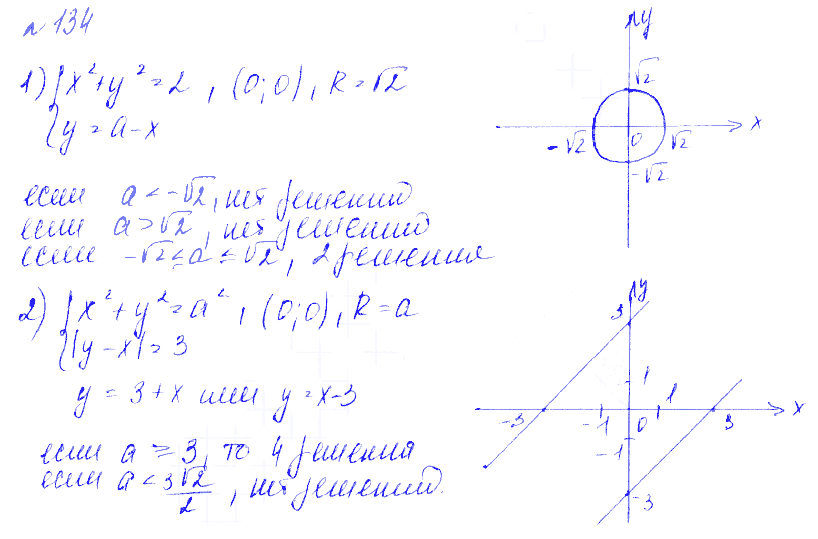 № 134
1) { x² + y² = 2 , (0;0), R = √2
{ y = a - x
если a < -√2, нет решений
если a > √2, нет решений
если -√2 ≤ a ≤ √2, 2 решения
2) { x² + y² = a² , (0;0), R = a
{ |y - x| = 3
y = 3 + x или y = x - 3
если a ≥ 3, то 4 решения
если a < 3√2/2 , нет решений.
y
√2
-√2 0 √2 x
-√2
y
3
1
-3 -1 0 1 3 x
-1
-3